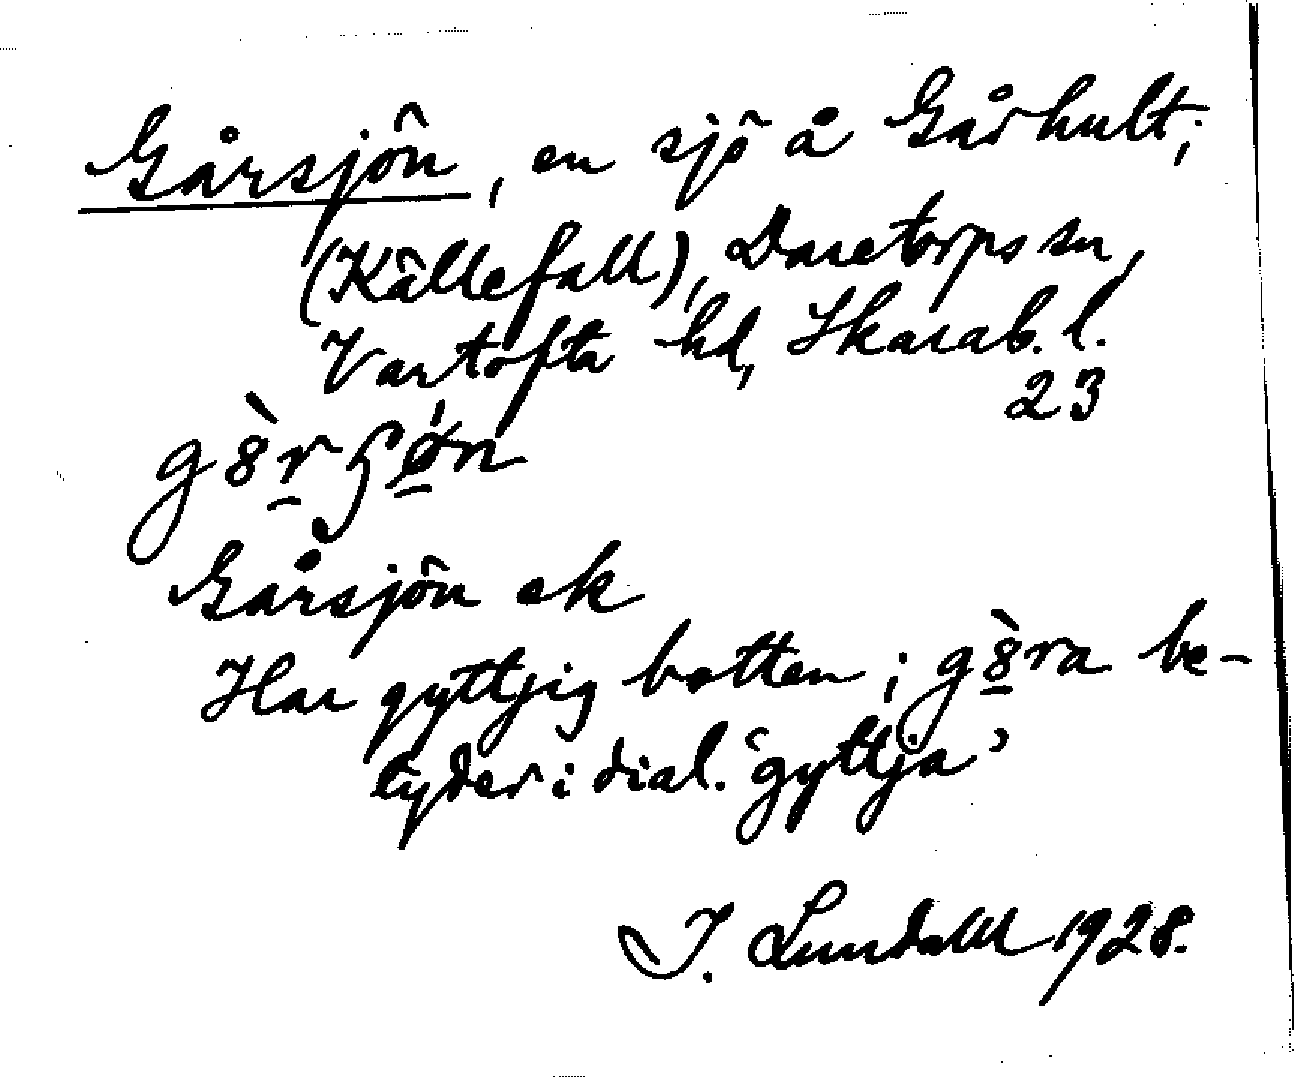 Gårsjön, en sjö å Gårhult,
(Källefall), Daretorps sn,
Vartofta hd, Skarab. l.
23
Gårsjön ek
Har gyttjig botten; g8̀ra be-
tyder i dial. 'gyttja'
I. Lundahl 1928.